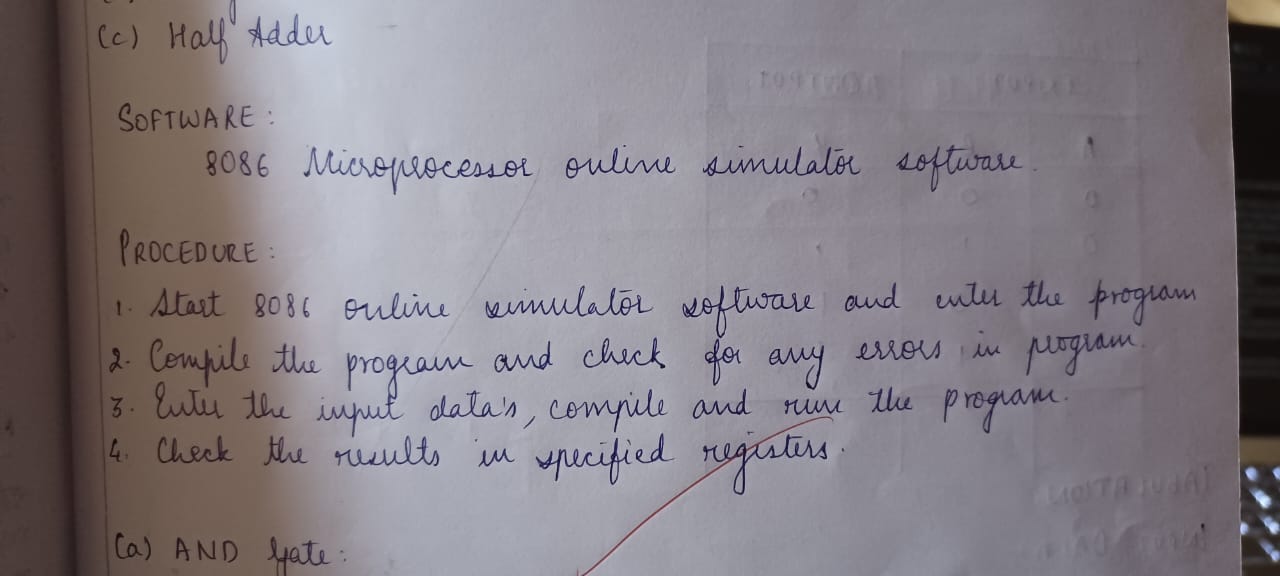 (c) Half Adder
SOFTWARE :
8086 Microprocessor online simulator software.
PROCEDURE :
1. Start 8086 online simulator software and enter the program
2. Compile the program and check for any errors in program.
3. Enter the input data's, compile and run the program.
4. Check the results in specified registers.
(a) AND Gate :